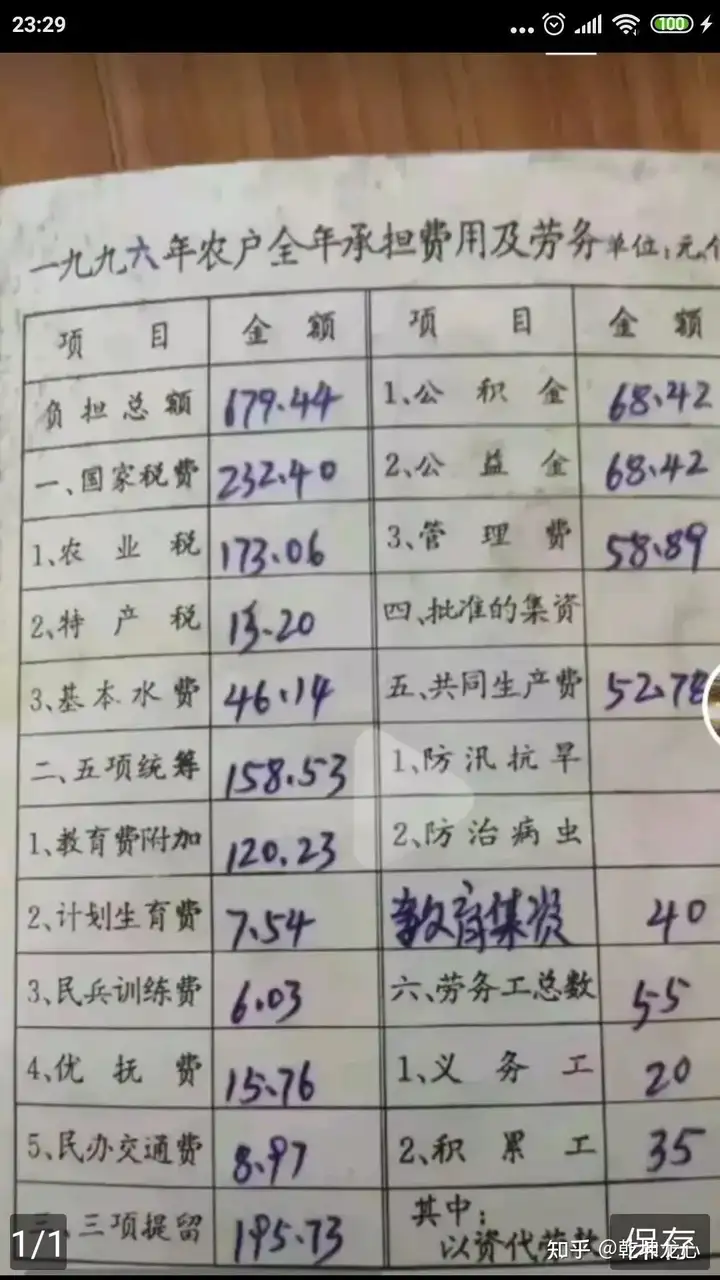 23:29
100
一九九六年农户全年承担费用及劳务 单位:元、
项目 金额 项目 金额
负担总额 679.44 1、公积金 68.42
一、国家税费 232.40 2、公益金 68.42
1、农业税 173.06 3、管理费 58.89
2、特产税 13.20 四、批准的集资
3、基本水费 46.14 五、共同生产费 52.78
二、五项统筹 158.53 1、防汛抗旱
1、教育费附加 120.23 2、防治病虫
2、计划生育费 7.54 教育集资 40
3、民兵训练费 6.03 六、劳务工总数 55
4、优抚费 15.76 1、义务工 20
5、民办交通费 8.97 2、积累工 35
三、三项提留 195.73 其中:
以资代劳款
1/1
保存
知乎 @乾坤龙心